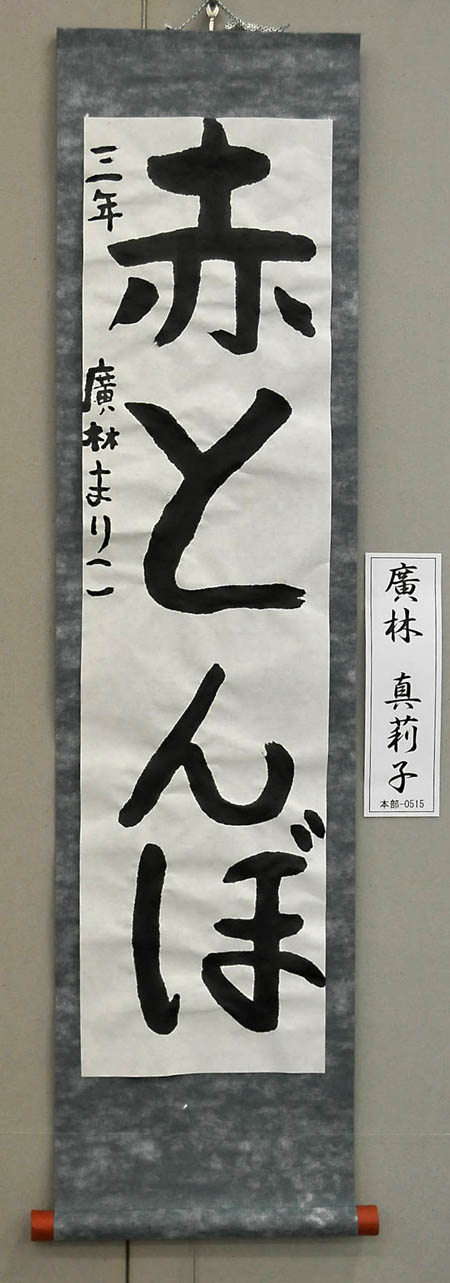 赤とんぼ
三年 廣林まりこ
廣林 真莉子
本部-0515